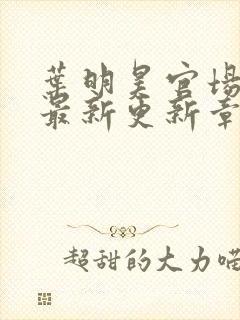 葉明昊官場
最新更新章
超甜的大力喵